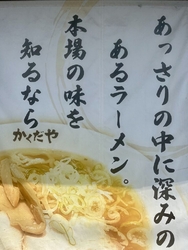 あっさりの中に深みの
あるラーメン。
本場の味を
知るなら
かくたや